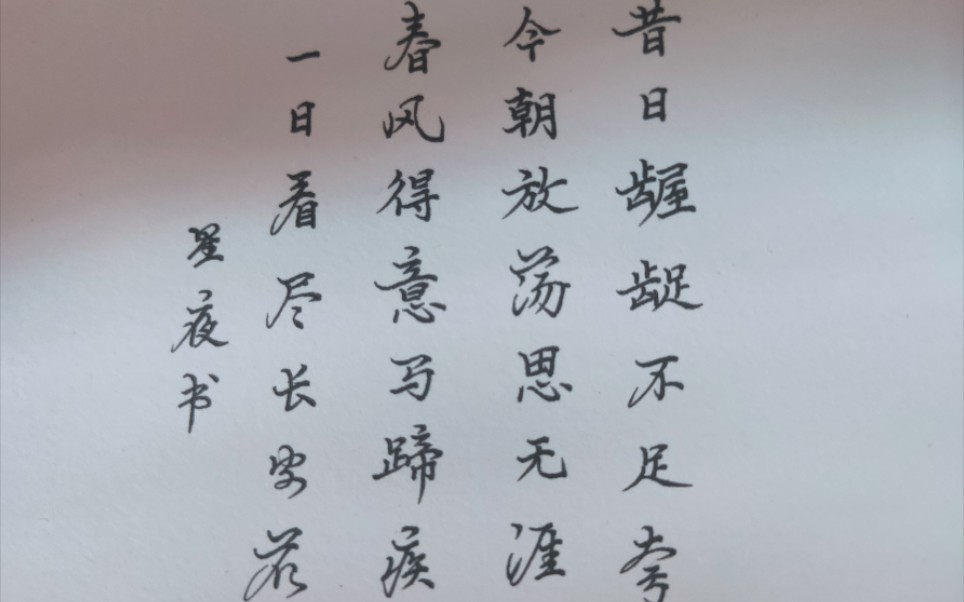 昔日龌龊不足夸
今朝放荡思无涯
春风得意马蹄疾
一日看尽长安花
星夜书